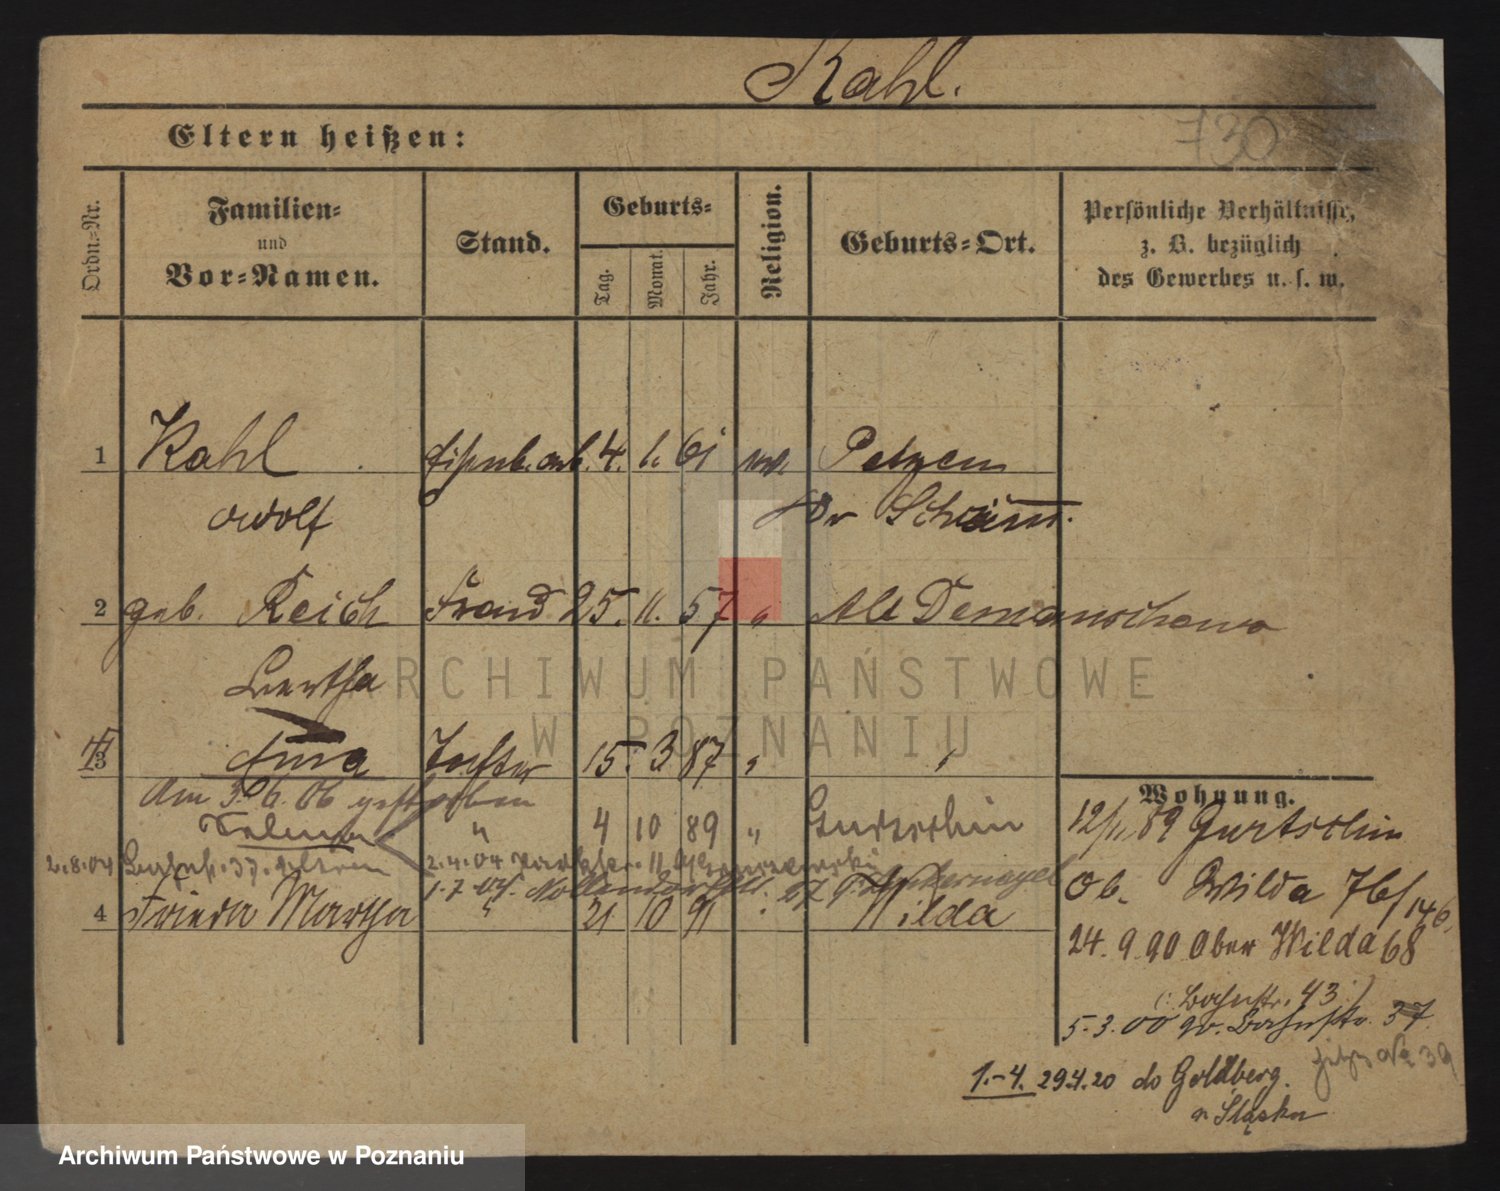 Kahl.
730
Eltern heißen:
Ordn=Nr.
Familien=
und
Vor=Namen.
Stand.
Geburts=
Tag.
Monat.
Jahr.
Religion.
Geburts=Ort.
Persönliche Verhältnisse,
z. B. bezüglich
des Gewerbes u. s. w.
1 Kahl Eisenb. arb. 4. 1. 61 ev. Petzen
Adolf
2 geb. Reich Frau 25. 11. 57 " Alt Demanschewo
Bertha
3 Anna Tochter 15. 3 87 "
Am 3. 6. 06 gestorben
" 4 10 89 " Gurtschin
2.8.04 Bahnst. 37. Eltern
2.4.04
1.7.04. Nollendorfstr.
4 Frieda Martha " 21 10 91 Wilda
Wohnung.
12/11 89 Gurtschin
Ob. Wilda 76/146.
24. 9. 90 Ober Wilda 68
(: Bahnstr. 43 :)
5.3.00 Bahnstr. 37.
jetzt No 39
1.-4. 29.4.20 do Goldberg.
n Śląsku
ARCHIWUM PAŃSTWOWE
W POZNANIU
Archiwum Państwowe w Poznaniu